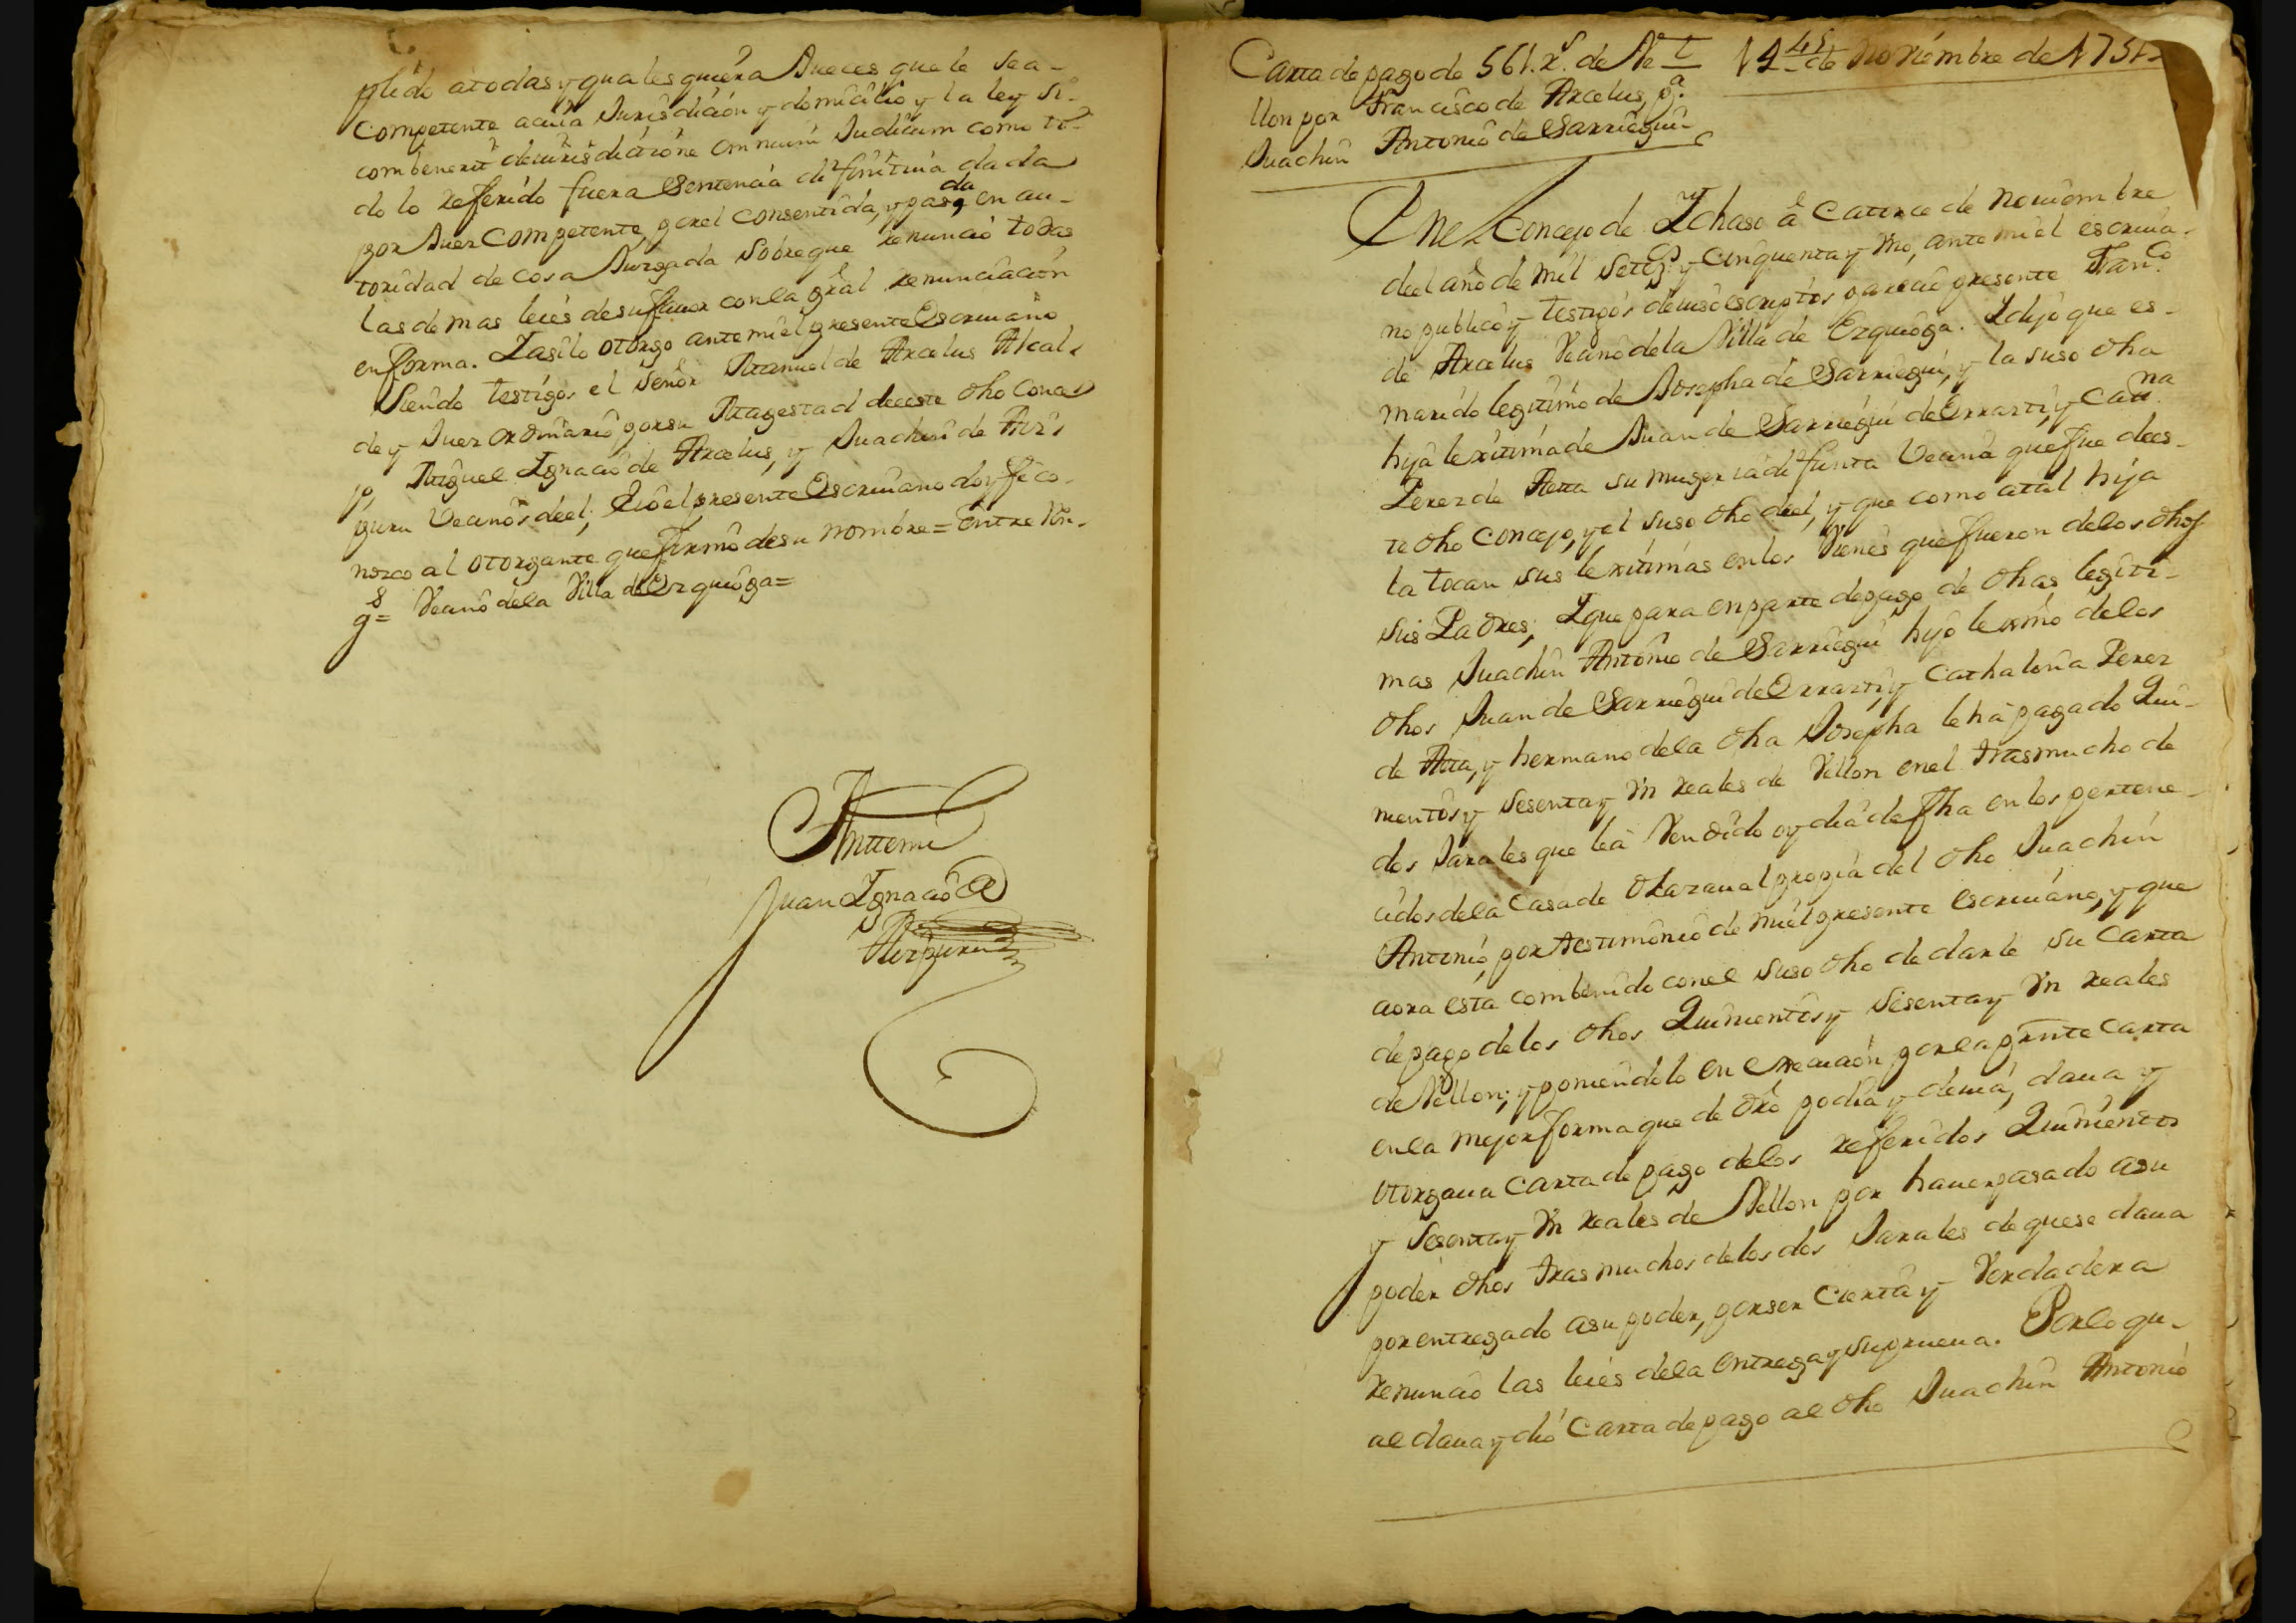 plido a todas y quales quiera Jueces que le sea-
competente a cuia Jurisdicion y domicilio y la ley si-
combenerit de iurisdictione omnium Judicum como to-
do lo referido fuera Sentencia difinitiua dada
por Juez competente por el consentida, y pasada en au-
toridad de cosa Juzgada sobre que renunció todas
las demas leies de su fauor con la gral renunciacion
en forma. Y asi lo otorgo ante mi el presente Escriuano
siendo testigos el señor Manuel de Arcelus Alcal-
de y Juez ordinario por su Magestad de este dho Concejo
Miguel Ignacio de Arcelus, y Juachin de Aiz-
puru Vecinos de el; E io el presente Escriuano doy fe co-
nozco al otorgante que firmó de su nombre = Entre Rin-
g.s = Vecino de la Villa de Ezquioga =
Antte mi
Juan Ignacio de
Aizpuru
Carta de pago de 561. r.s de Ve-
llon por Francisco de Arcelus, p.a
Juachin Antonio de Sarriegui
14 de Noviembre de 1751
En el Concejo de Ychaso a Catorce de Nouiembre
del año de mil setez.s y cinquenta y vno, ante mi el escriua-
no publico y testigos de iuso escriptos parecio presente Fran.co
de Arcelus Vecino de la Villa de Ezquioga. Y dijo que es-
marido legitimo de Josepha de Sarriegui, y la suso dha
hija lexitima de Juan de Sarriegui de Errarti, y Cat.na
Perez de Atta su muger ia difunta Vecina que fue de es-
te dho Concejo, y el suso dho de el, y que como a tal hija
la tocan sus lexitimas en los Vienes que fueron de los dhos
sus Padres; Y que para en parte de pago de dhas legiti-
mas Juachin Antonio de Sarriegui hijo lexmo de los
dhos Juan de Sarriegui de Errarti, y Cathalina Perez
de Atta, y hermano de la dha Josepha le ha pagado Qui-
nientos y sesenta y Vn reales de Vellon en el trasmucho de
dos Jarales que le á Vendido oy dia de fha en los pertene-
cidos de la casa de Olazaual propia del dho Juachin
Antonio, por testimonio de mi el presente escriuano, y que
aora esta combenido con el suso dho de darle su Carta
de pago de los dhos Quinientos y sesenta y Vn reales
de Vellon; y poniendolo en execucion por la prnte Carta
en la mejor forma que de dro podia y deuia, daua y
otorgaua Carta de pago de los referidos Quinientos
y Sesenta y Vn reales de Vellon por hauer pasado a su
poder dhos trasmuchos de los dos Jarales de que se daua
por entregado a su poder, por ser cierta y Verdadera
renunció las leies de la entrega y su prueua. Por lo qu-
al daua y dió Carta de pago al dho Juachin Antonio